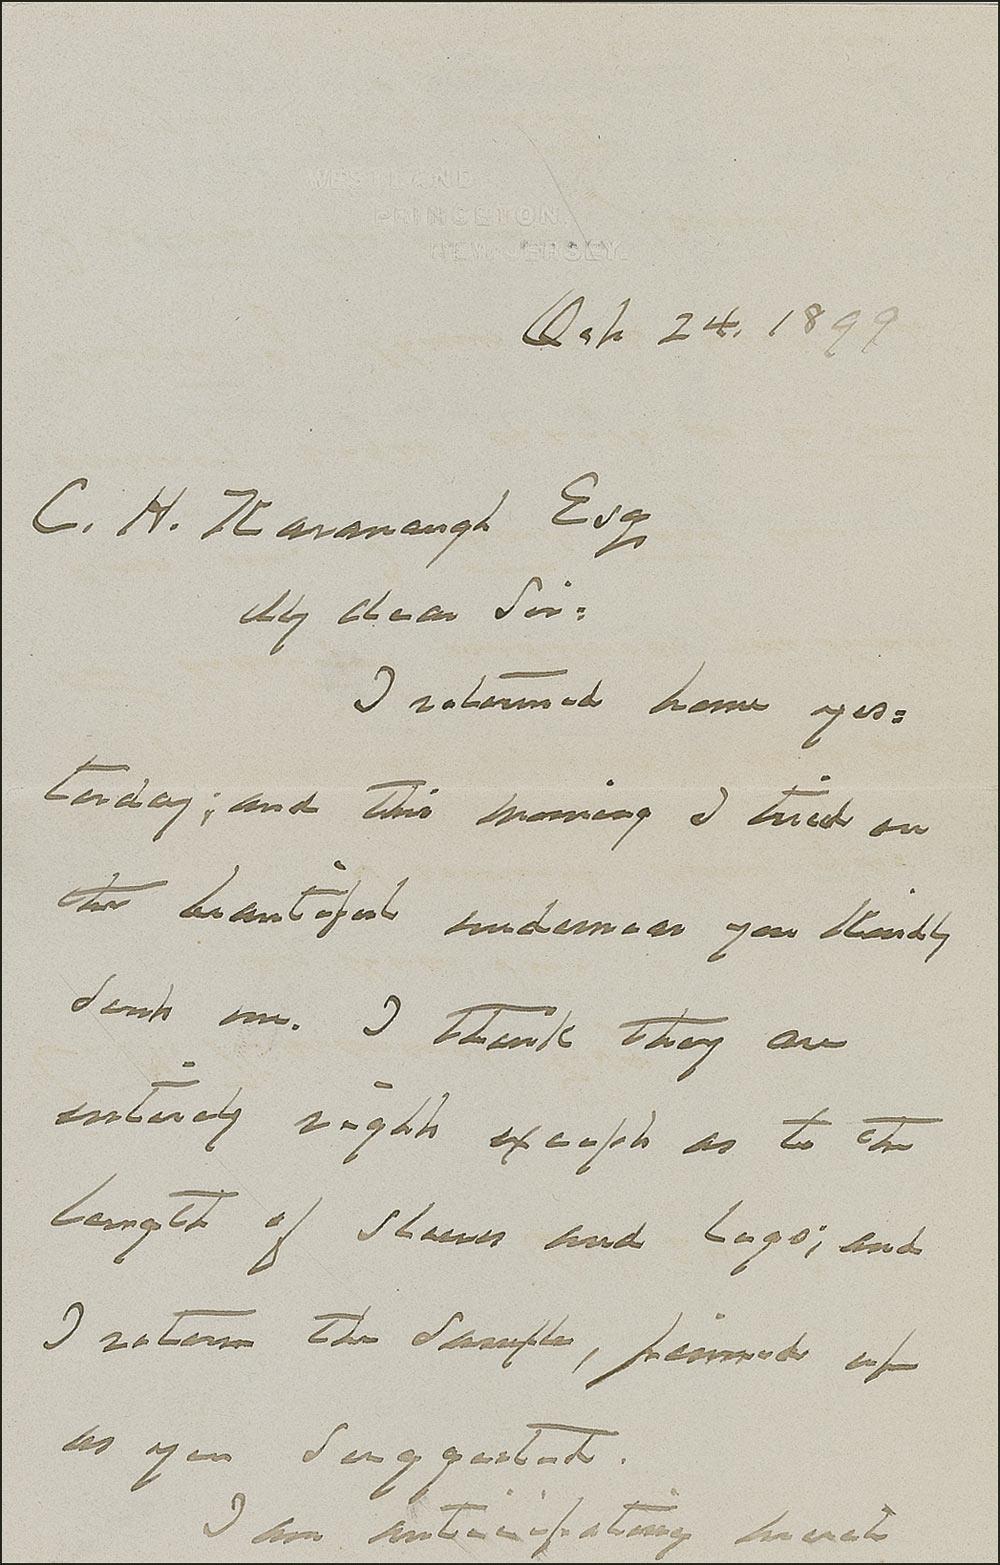 WESTLAND
PRINCETON,
NEW JERSEY.
Oct 24, 1899
C. H. Kavanaugh Esq
My dear Sir:
I returned home yes=
terday; and this morning I tried on
the beautiful underwear you kindly
sent me. I think they are
entirely right except as to the
length of sleeves and legs; and
I return the sample, pinned up
as you suggested.
I am anticipating much